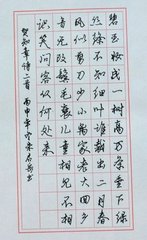 碧玉妆成一树高万条垂下绿
丝绦不知细叶谁裁出二月春
风似剪刀少小离家老大回乡
音无改鬓毛衰儿童相见不相
识笑问客从何处来
贺知章诗二首 丙申年 书